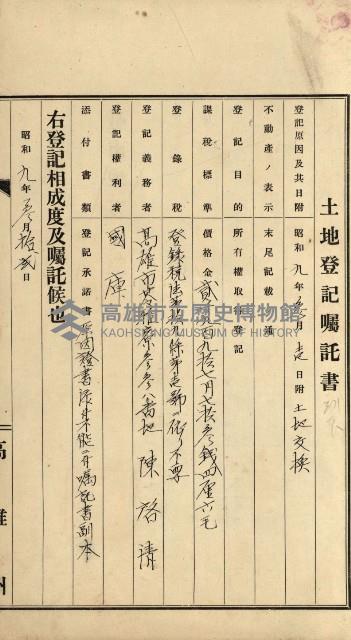 土地登記囑託書
登記原因及其日附 昭和九年參月 日附土地交換
不動產ノ表示 末尾記載ノ通
登記目的 所有權取得登記
課稅標準 價格金貳 百九拾 円七拾參錢四厘六毛
登錄稅 登錄稅法第拾九條第 號ニ依リ不要
登記義務者 高雄市苓雅寮參參八番地 陳啓清
登記權利者 國庫
添付書類 登記承諾書 原因證書 囑託書副本
右登記相成度及囑託候也
昭和九年參月拾貳日
高雄州
高雄市立歷史博物館
KAOHSIUNG MUSEUM OF HISTORY